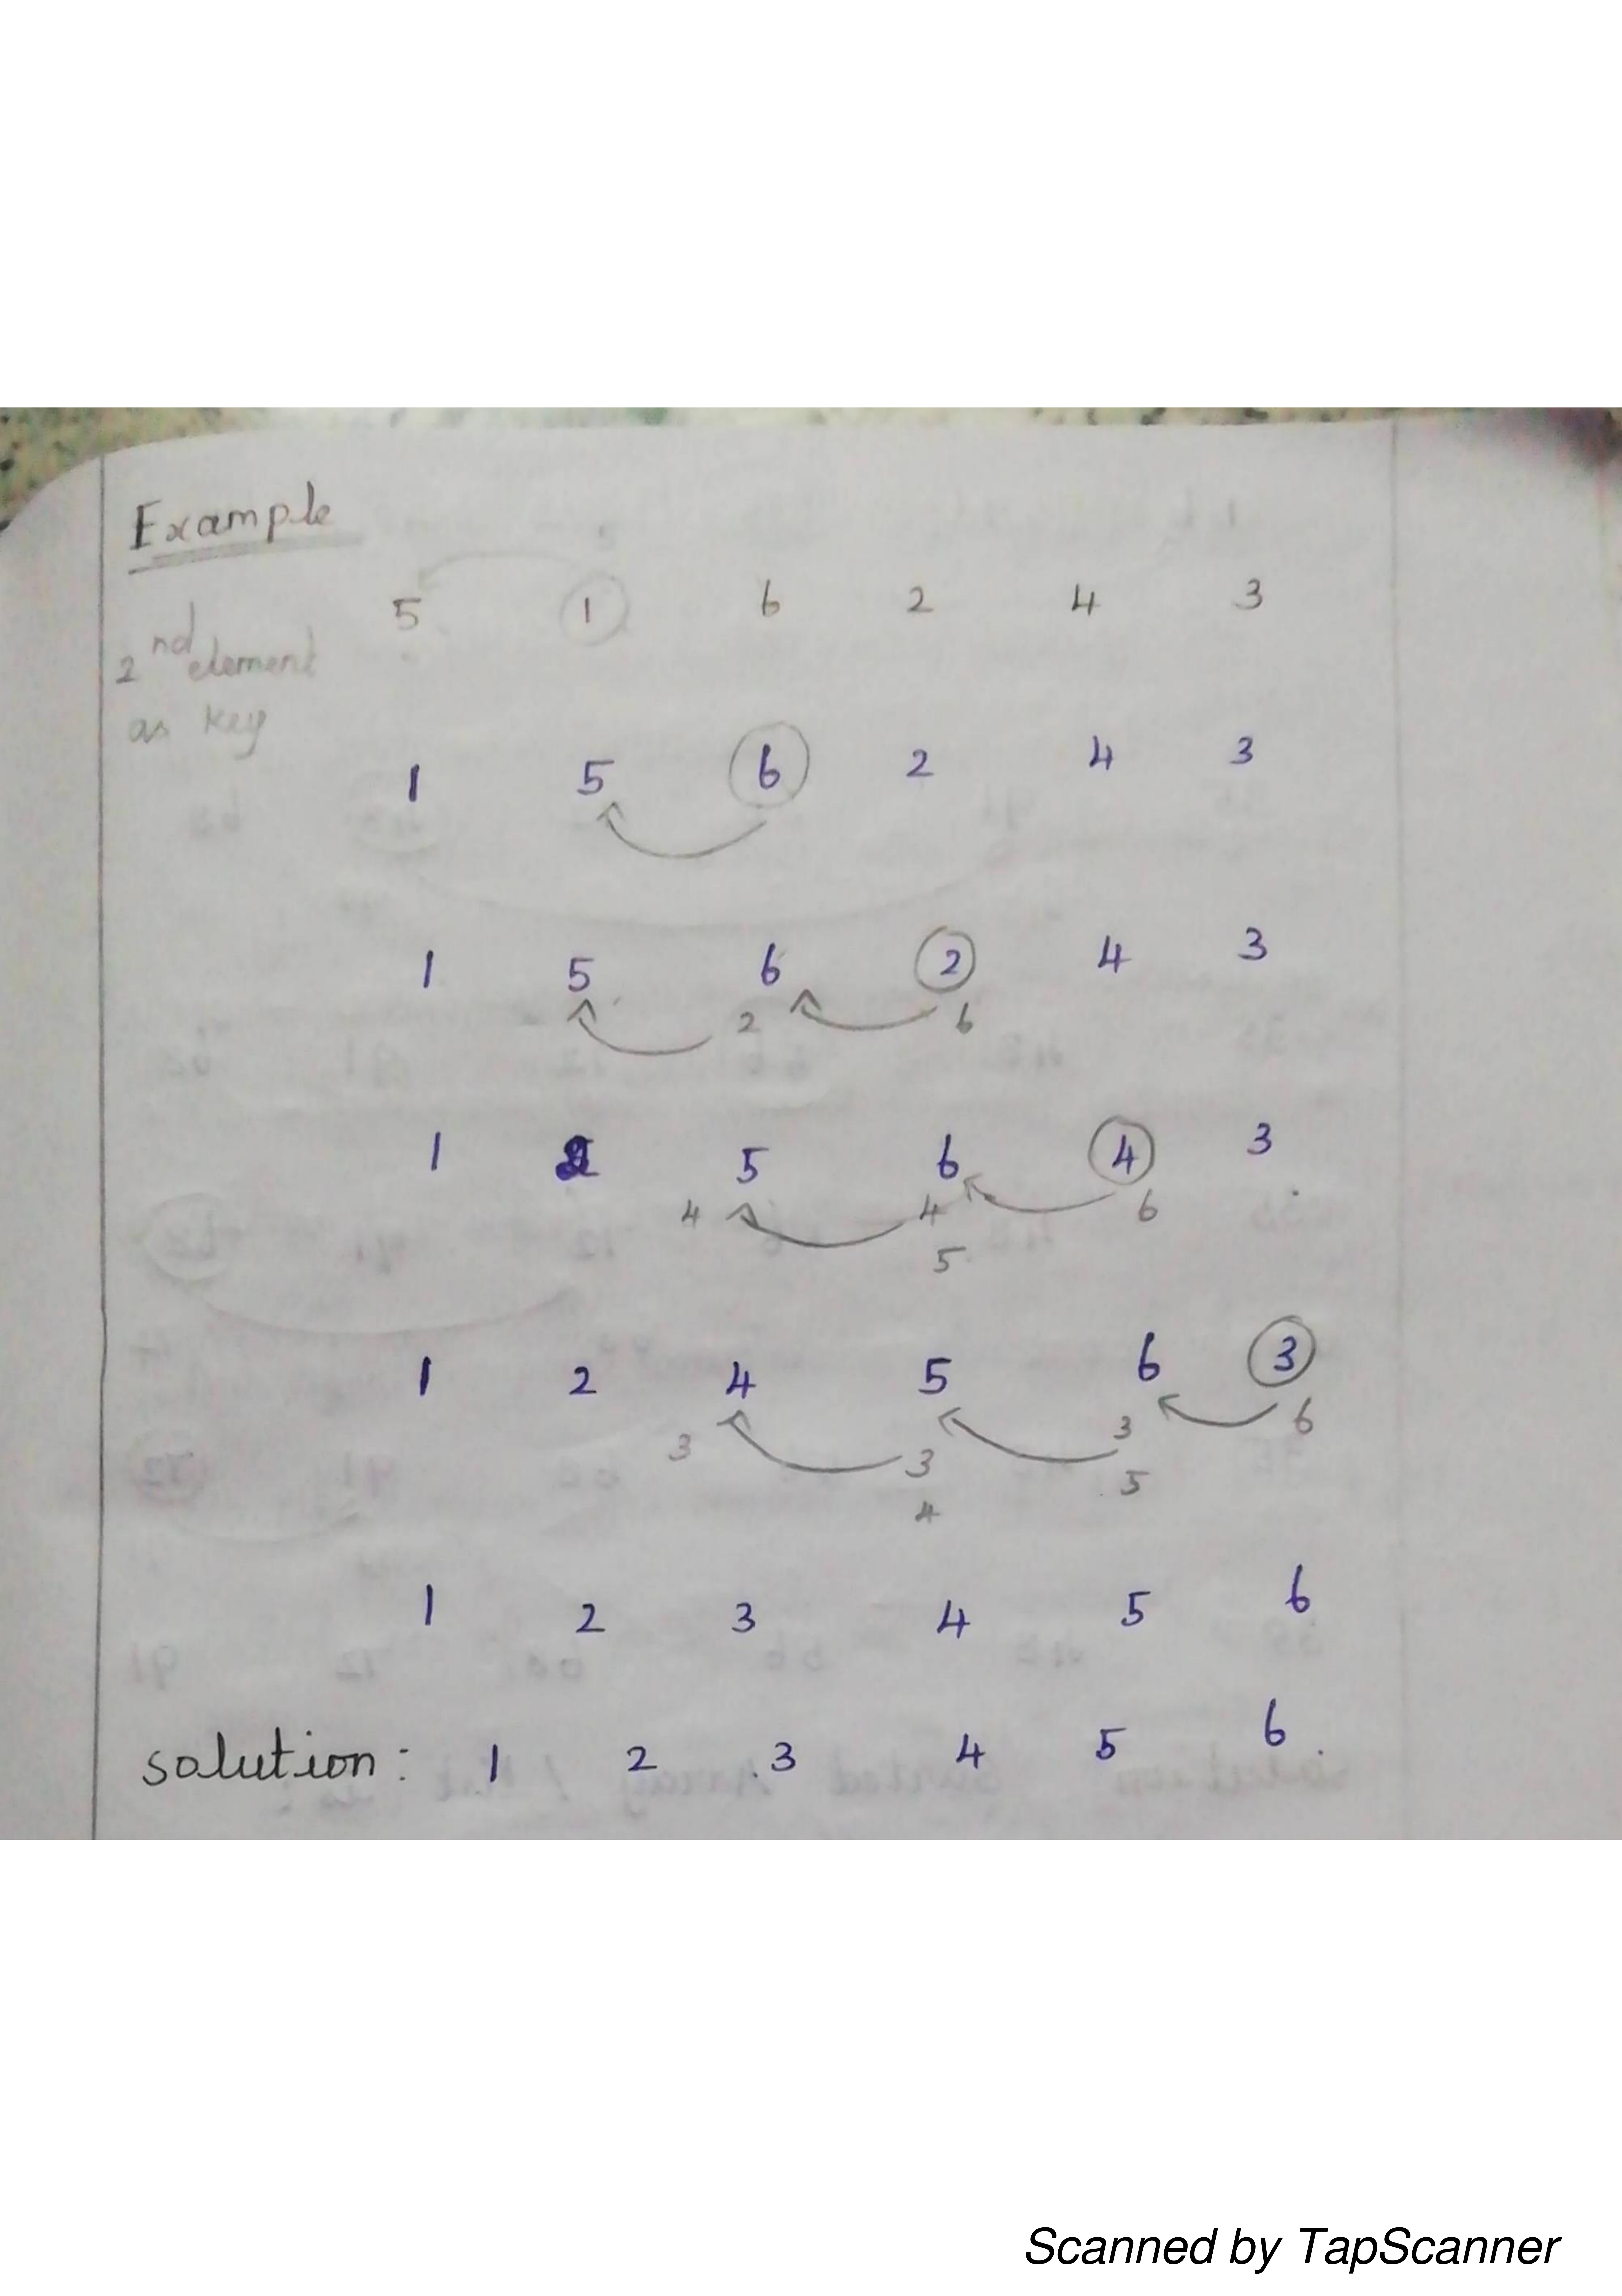 Example
5
5 1 6 2 4 3
2nd element
as key
1 5 6 2 4 3
1 5 6 2 4 3
2 6
1 2 5 6 4 3
4 4 6
5
1 2 4 5 6 3
3 3 3 6
4 5
1 2 3 4 5 6
solution: 1 2 3 4 5 6.
Scanned by TapScanner